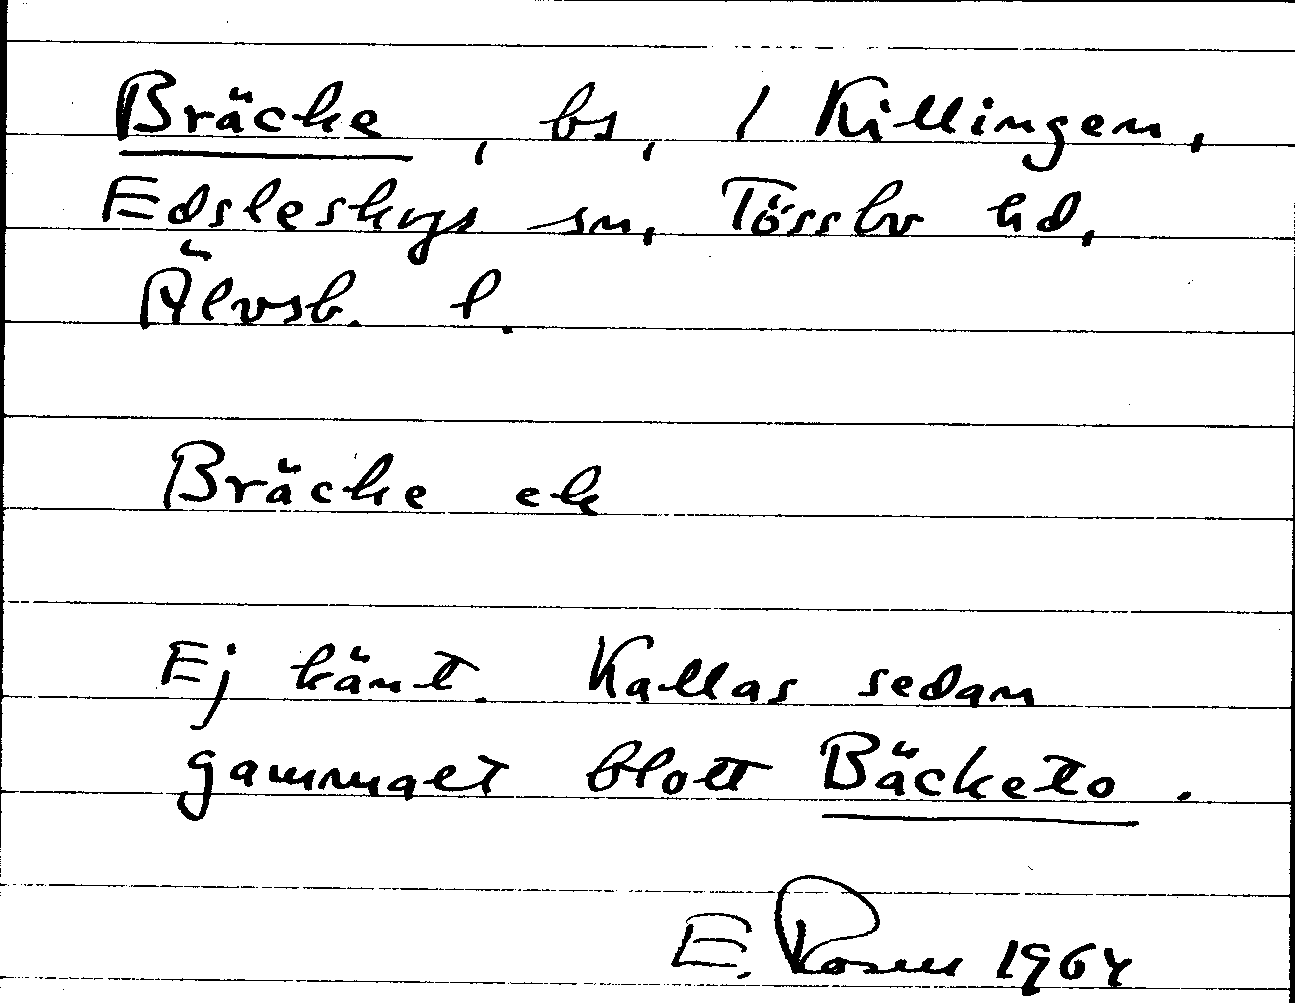 Bräcke, bs, / Killingen,
Edsleskogs sn, Tössbo hd,
Älvsb. l.
Bräcke ek
Ej känt. Kallas sedan
gammalt blott Bäcketo.
E. Rosen 1964